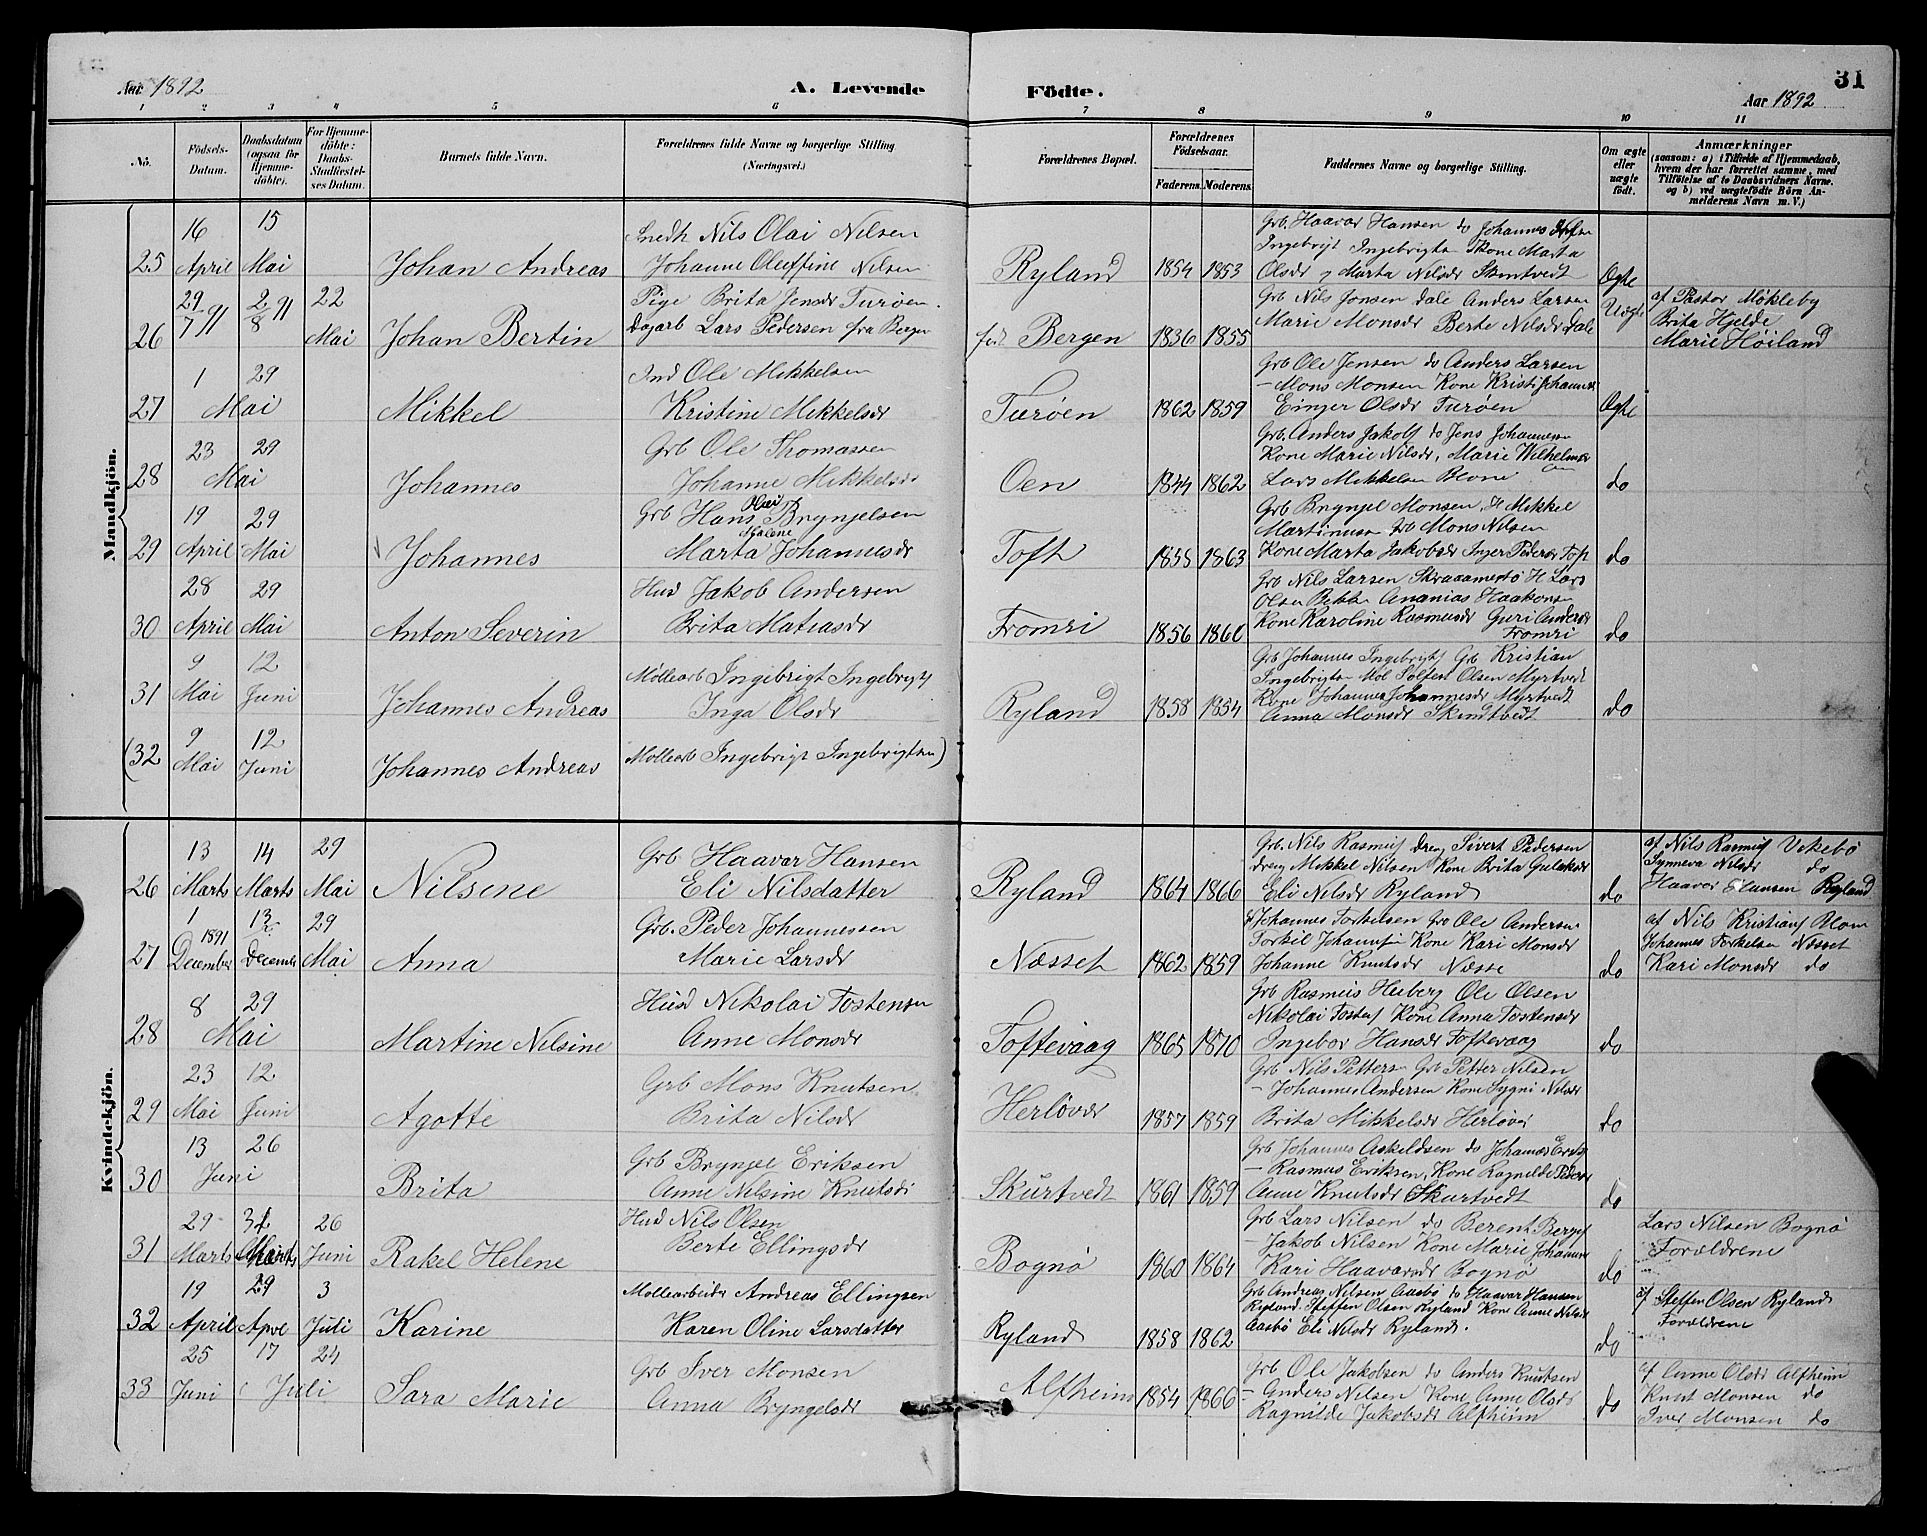 Aar 1892
A. Levende Födte.
Aar 1892
31
1 2 3 4 5 6 7 8 9 10 11
No.
Födsels-Datum.
Daabsdatum (ogsaa for Hjemme-döbte).
For Hjemme-döbte: Daabs-Stadfæstel-ses Datum.
Barnets fulde Navn.
Forældrenes fulde Navne og borgerlige Stilling (Næringsvei.)
Forældrenes Bopæl.
Forældrenes Födselsaar.
Faderens. Moderens.
Faddernes Navne og borgerlige Stilling.
Om ægte eller uægte födt.
Anmærkninger
(saasom: a) i Tilfælde af Hjemmedaab,
hvem der har forrettet samme, med
Tilföielse af to Daabsvidners Navne,
og b) ved uægtefödte Börn An-
melderens Navn m. V.)
Mandkjön.
25 16 April 15 Mai Johan Andreas
Snedk Nils Olai Nilsen
Johanne Oluffine Nilsen
Ryland 1854 1853
Grb. Haavar Hansen do Johannes
Ingebrigt Ingebrigts Kone Marta
Olsdr p Marta Nilsdr Skintvedt
Ægte
26 29/7 91 2/8 91 22 Mai Johan Bertin
Pige Brita Jensdr Turøen.
Dagarb Lars Pedersen fra Bergen
Bergen 1836 1855
Grb Nils Jonsen Dale Anders Larsen
Marie Monsdr Berte Nilsdr Dale
Uægte
af Pastor Møkleby
Brita Hjelde
Marie Høiland
27 1 29 Mai Mikkel
Ind Ole Mikkelsen
Kristine Mikkelsdr
Turøen 1862 1859
Grb Ole Jensen do Anders Larsen
- Mons Monsen Kone Kristi Johannes
Einger Olsdr Turøen
Ægte
28 23 29 Mai Johannes
Grb Ole Thomassen
Johanne Mikkelsdr
Oen 1844 1862
Grb. Anders Jakobs do Jens Johannesen
Kone Marie Nilsdr, Marie Wilhelmsdr
Lars Mikkelsen Blom
do
29 19 April 29 Mai Johannes
Grb Hans Olai Brynjelsen
Marta Malene Johannesdr
Toft 1855 1863
Grb Brynjel Monsen, H Mikkel
Martinusen Grb Mons Nilsen
Kone Marta Jakobsdr Inger Pedersdr Toft
do
30 28 April 29 Mai Anton Severin
Husd Jakob Andersen
Brita Matiasdr
Fromri 1856 1860
Grb Nils Larsen Skraaamestø H Lars
Olsen Bekk Ananias Haakonsen
Kone Karoline Rasmusdr Guri Andersdr
Fromri
do
31 9 Mai 12 Juni Johannes Andreas
Møllearb Ingebrigt Ingebrigts
Inga Olsdr
Ryland 1858 1854
Grb Johannes Ingebrigts Grb Kristian
Ingebrigtsen Møl Solfest Olsen Myrtvedt
Kone Johanne Johannesdr Myrtvedt
Anna Monsdr Skintvedt
do
(32 9 Mai 12 Juni Johannes Andreas
Møllearb Ingebrigt Ingebrigtsen)
Kvindekjön.
26 13 Marts 14 Marts 29 Mai Nilsine
Grb Haavar Hansen
Eli Nilsdatter
Ryland 1864 1866
Grb. Nils Rasmus dreng Sivert Pedersen
dreng Mikkel Nilsen Kone Brita Gulaksdr
Eli Nilsdr Ryland
do
af Nils Rasmus Vikebø
Synneva Nilsdr do
Haavar Hansen Ryland
27 1 December 1891 13 December 29 Mai Anna
Grb. Peder Johannessen
Marie Larsdr
Næsset 1862 1859
H Johannes Torkelsen Grb Ole Andersen
Torkil Johannes Kone Kari Monsdr
Johanne Knutsdr Næsse
do
af Nils Kristians Blom
Johannes Torkelsen Næsset
Kari Monsdr do
28 8 29 Mai Martine Nilsine
Husd Nikolai Tostensen
Anne Monsdr
Toftevaag 1865 1870
Grb Rasmus Heiberg Ole Olsen
Nikolai Tostens Kone Anna Tostensdr
Ingebor Hansdr Toftevaag
do
29 23 Mai 12 Juni Agotte
Grb Mons Knutsen
Brita Nilsdr
Herløvær 1857 1859
Grb Nils Petters Grb Petter Nilsen
- Johannes Andersen Kone Sygni Nilsdr
Brita Mikkelsdr Herløver
do
30 13 26 Juni Brita
Grb Brynjel Eriksen
Anne Nilsine Knutsdr
Skurtvedt 1861 1859
Grb Johannes Askeldsen do Johannes Eriks
- Rasmus Eriksen, Kone Ragnilde Pedersdr
Anne Knutsdr Skurtvedt
do
31 29 Marts 31 Marts 26 Juni Rakel Helene
Husd Nils Olsen
Berte Ellingsdr
Bognø 1860 1864
Grb Lars Nilsen do Berent Berges
- Jakob Nilsen Kone Marie Johannes
Kari Haavarsdr Bognø
do
Lars Nilsen Bognø
Forældrene
32 19 April 29 Apr 3 Juli Karine
Møllearbeider Andreas Ellingsen
Karen Oline Larsdatter
Ryland 1858 1862
Grb Andreas Nilsen Aasbø do Haavar Hansen
Ryland Steffen Olsen Ryland Kone Anne Nilsdr
Aasbø Eli Nilsdr Ryland.
do
af Steffen Olsen Ryland
Forældrene
33 25 Juni 17 24 Juli Sara Marie
Grb Iver Monsen
Anna Bryngelsdr
Alfheim 1854 1866
Grb Ole Jakobsen do Anders Knutsen
- Anders Nilsen Kone Anne Olsdr
Ragnilde Jakobsdr Alfheim
do
af Anne Olsdr Alfheim
Knut Monsen do
Iver Monsen do